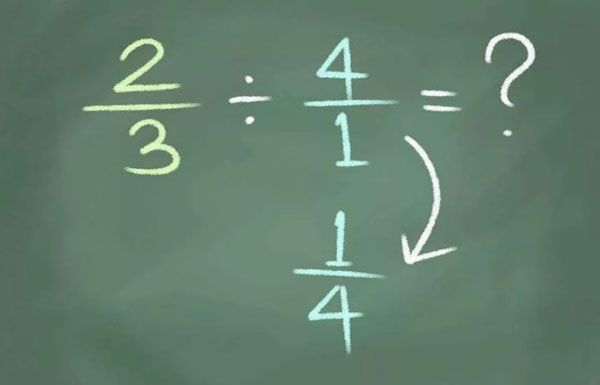 2/3 ÷ 4/1 = ?
1/4